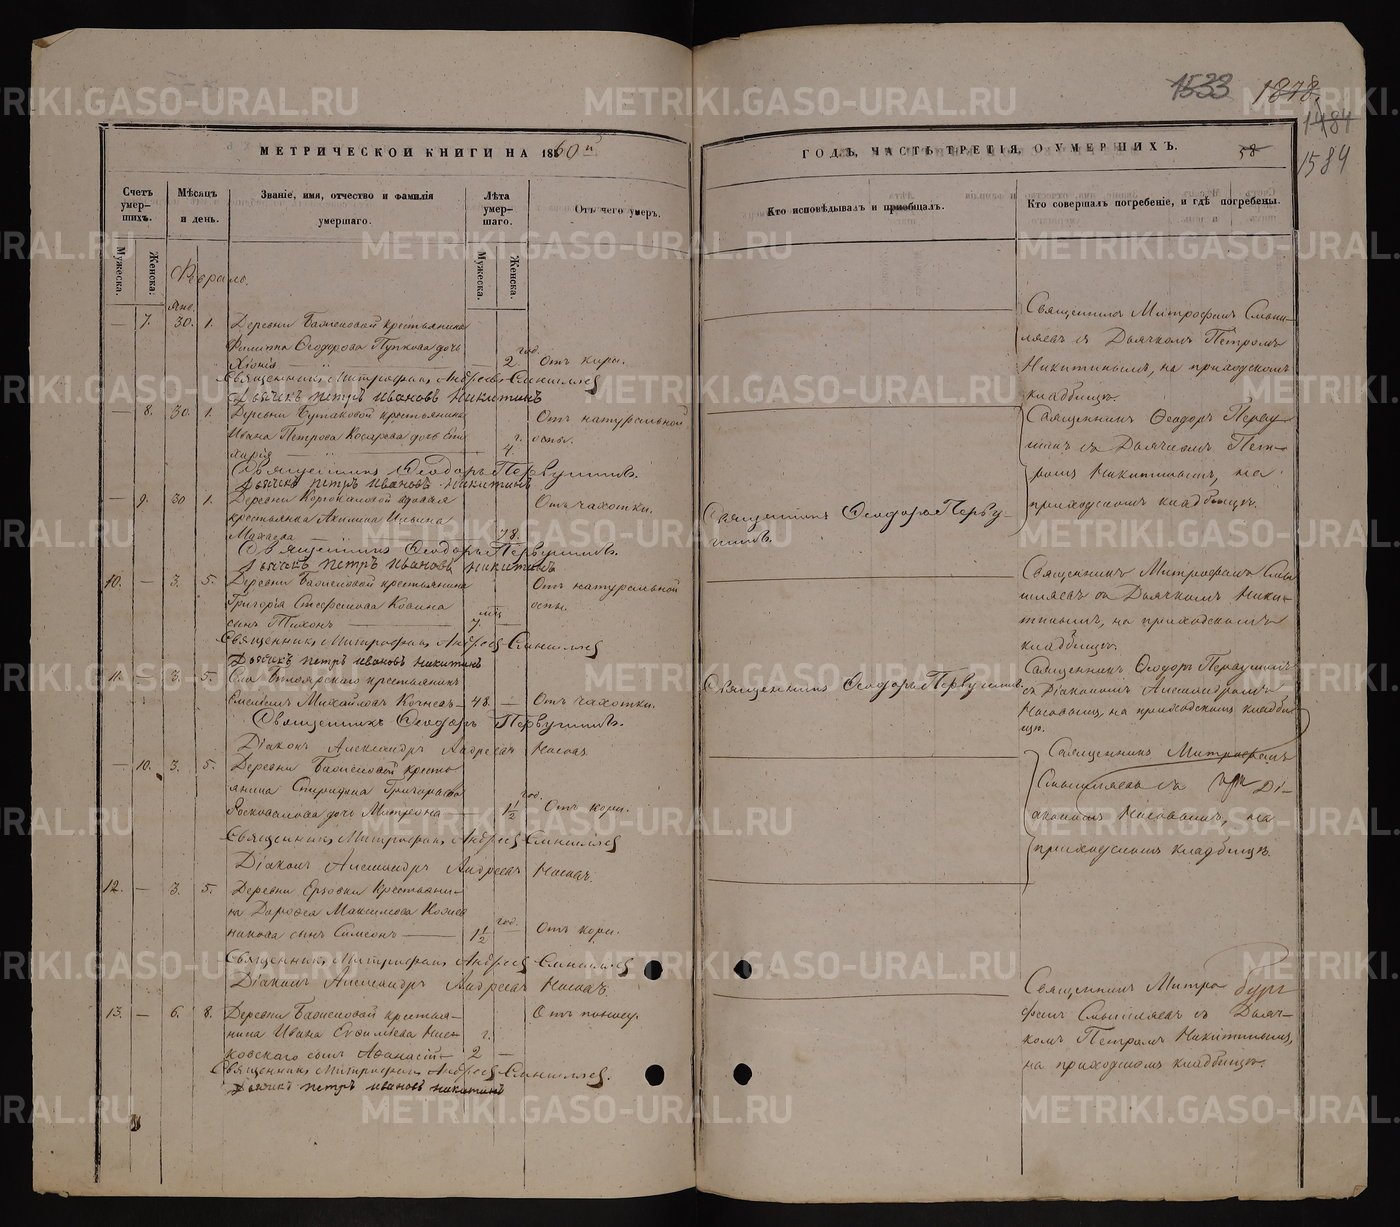 1533 1878.
1484
1584
58
МЕТРИЧЕСКОЙ КНИГИ НА 1860й
ГОДЪ, ЧАСТЬ ТРЕТІЯ, О УМЕРШИХЪ.
Счетъ умер-шихъ.
Мужеска.
Женска.
Мѣсяцъ и день.
Званіе, имя, отчество и фамилія умершаго.
Лѣта умер-шаго.
Мужеска.
Женска.
Отъ чего умеръ.
Кто исповѣдывалъ и приобщалъ.
Кто совершалъ погребеніе, и гдѣ погребены.
Февраль.
Янв.
— 7. 30. 1. Деревни крестьянина
Филиппа Ѳеодорова Пупкова дочь
Хіонія — 2 год. Отъ кори.
Священникъ Митрофанъ Андреевъ Смышляевъ
Дьячекъ Петръ Ивановъ Никитинъ
Священникъ Митрофанъ Смыш-
ляевъ съ Дьячкомъ Петромъ
Никитинымъ, на приходскомъ
кладбищѣ.
— 8. 30. 1. Деревни Бутаковой крестьянина
Ивана Петрова дочь
— 4. г. Отъ натуральной
оспы.
Священникъ Ѳеодоръ Первушинъ.
Дьячекъ Петръ Ивановъ Никитинъ
Священникъ Ѳеодоръ Перву-
шинъ съ Дьячкомъ Пет-
ромъ Никитинымъ, на
приходскомъ кладбищѣ.
— 9. 30 1. Деревни вдовая
крестьянка Акилина Ильина
— 78. Отъ чахотки.
Священникъ Ѳеодоръ Первушинъ.
Дьячекъ Петръ Ивановъ Никитинъ
Священникъ Ѳеодоръ Перву-
шинъ.
10. — 3. 5. Деревни крестьянина
Григорія Стефанова
сынъ Тихонъ 7. мѣс — Отъ натуральной
оспы.
Священникъ Митрофанъ Андреевъ Смышляевъ
Дьячекъ Петръ Ивановъ Никитинъ
Священникъ Митрофанъ Смы-
шляевъ съ Дьячкомъ Ники-
тинымъ, на приходскомъ
кладбищѣ.
11. — 3. 5. Села Бѣлоярскаго крестьянинъ
Михайловъ Кочневъ — 48. — Отъ чахотки.
Священникъ Ѳеодоръ Первушинъ.
Діаконъ Александръ Андреевъ Носовъ
Священникъ Ѳеодоръ Первушинъ.
Священникъ Ѳеодоръ Первушинъ
съ Діакономъ Александромъ
Носовымъ, на приходскомъ кладби-
щѣ.
— 10. 3. 5. Деревни кресть-
янина Спиридона Григорьева
дочь Матрона — 1½ год. Отъ кори.
Священникъ Митрофанъ Андреевъ Смышляевъ
Діаконъ Александръ Андреевъ Носовъ.
Священникъ Митрофанъ
Смышляевъ съ Ді-
акономъ Носовымъ, на
приходскомъ кладбищѣ.
12. — 3. 5. Деревни крестьяни-
на Дорофея Максимова
сынъ Симеонъ — 1½ год. Отъ кори.
Священникъ Митрофанъ Андреевъ Смышляевъ
Діаконъ Александръ Андреевъ Носовъ.
13. — 6. 8. Деревни крестья-
нина Ивана
сынъ Аѳанасій — 2 г. — Отъ поносу.
Священникъ Митрофанъ Андреевъ Смышляевъ.
Дьячекъ Петръ Ивановъ Никитинъ
Священникъ Митро
фанъ Смышляевъ съ Дьяч-
комъ Петромъ Никитинымъ,
на приходскомъ кладбищѣ.
METRIKI.GASO-URAL.RU